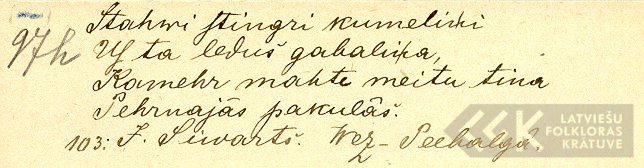 97h
Stahwi stingri kumeliņi
Uſ ta leduſ gabaliņa,
Kamehr mahte meitu tina
Pehrnajâs pakulâs.
103: J. Siwartſ. Wez-Peebalgâ.
LATVIEŠU
FOLKLORAS
KRĀTUVE